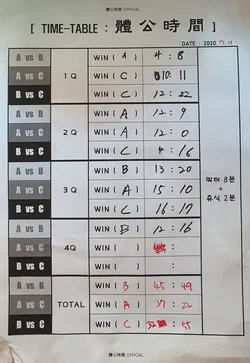 體公時間 OFFICIAL
[ TIME-TABLE : 體公時間 ]
DATE : 2020. 7. 11
A vs B WIN ( A ) 4 : 8
A vs C 1Q WIN ( C ) 10 : 11
B vs C WIN ( C ) 12 : 22
A vs B WIN ( A ) 12 : 9
A vs C 2Q WIN ( A ) 12 : 0
B vs C WIN ( C ) 4 : 16
A vs B WIN ( B ) 13 : 20
A vs C 3Q WIN ( A ) 15 : 10
B vs C WIN ( C ) 16 : 17
A vs B WIN ( B ) 12 : 16
A vs C 4Q WIN ( ) :
B vs C WIN ( ) :
A vs B WIN ( B ) 45 : 49
A vs C TOTAL WIN ( A ) 37 : 22
B vs C WIN ( C ) 32 : 55
8분
+
휴식 2분
體公時間 OFFICIAL